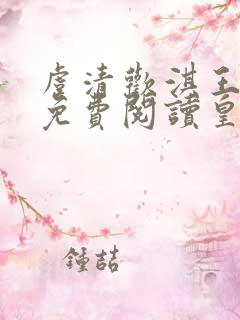 虐清歡淇王
免費閱讀皇
鍾喆